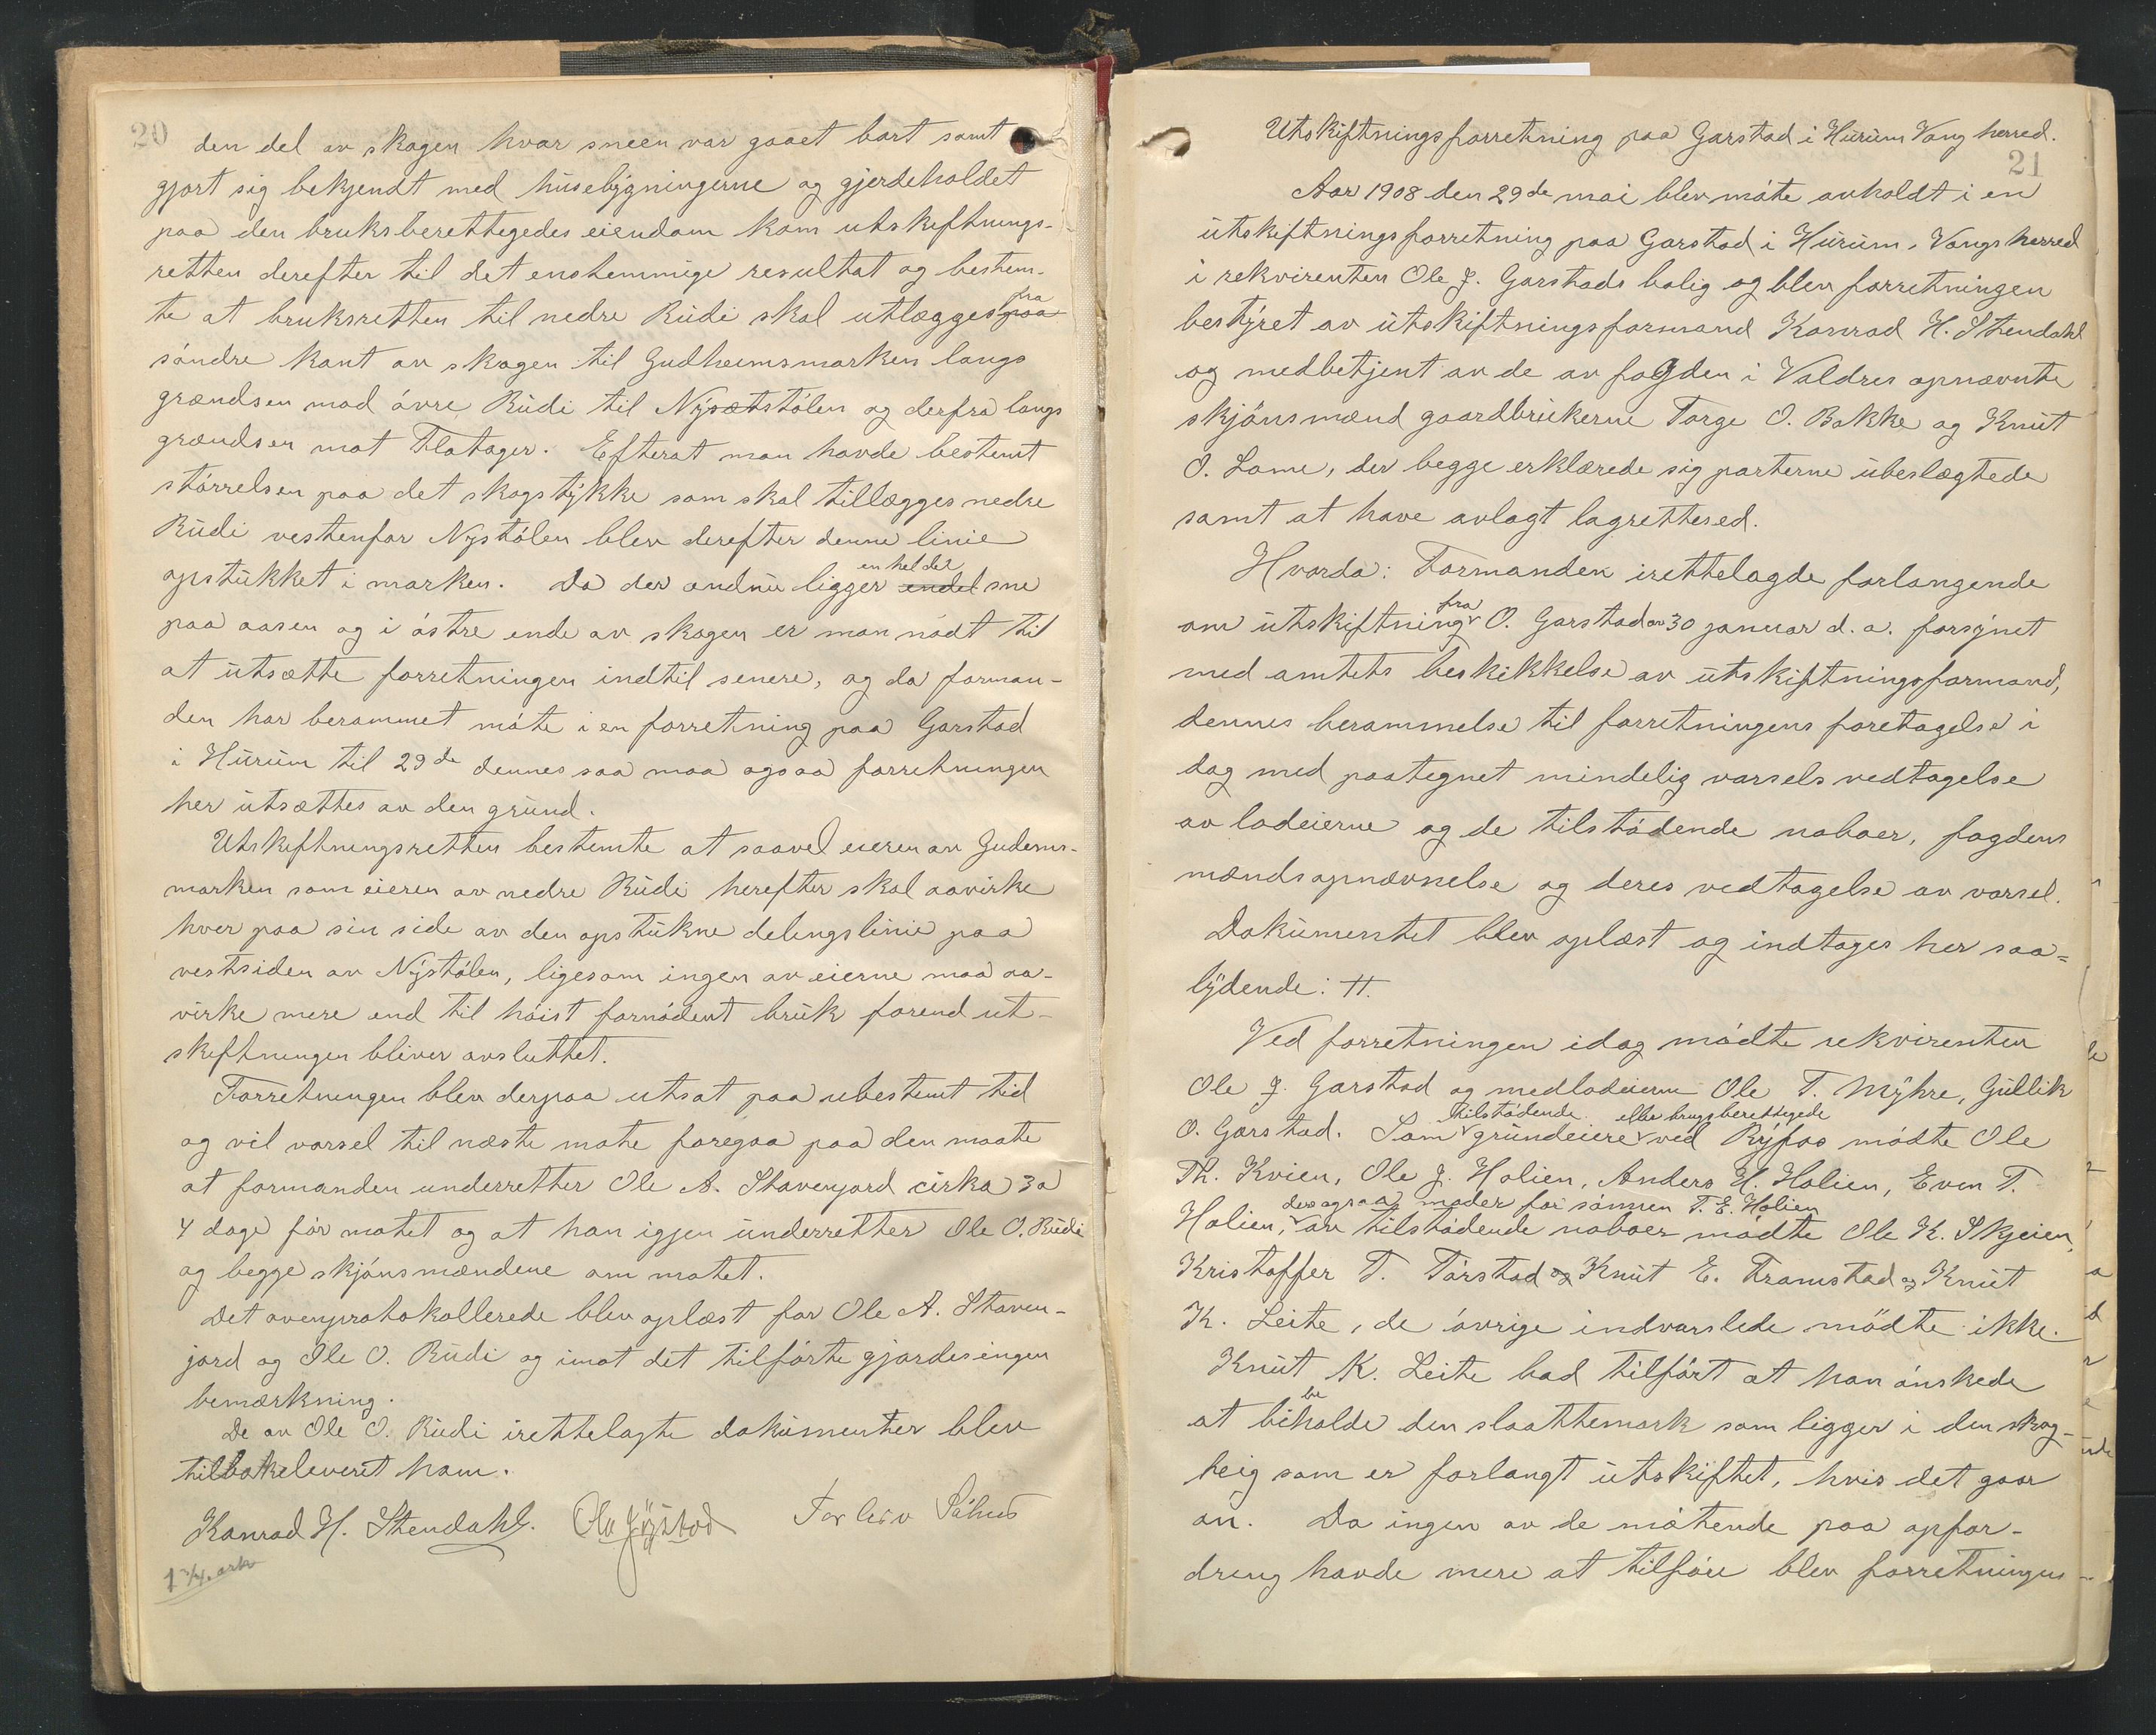 20
den del av skogen hvor sneen var gaaet bort samt
gjort sig bekjendt med husebygningerne og gjerdeholdet
paa den bruksberettegedes eiendom kom utskeftnings-
retten derefter til det enstemmige resultat og bestem-
te at bruksretten til nedre Rudi skal utlægges fra
söndre kant av skogen til Gudheimsmarken langs
grændsen mod övre Rudi til Nysætstölen og derfra langs
grændsen mot Flatager. Efterat man havde bestemt
störrelsen paa det skogstykke som skal tillægges nedre
Rudi vestenfor Nystölen blev derefter denne linie
opstukket i marken. Da der endnu ligger en hel del sne
paa aasen og i östre ende av skogen er man nödt til
at utsætte forretningen indtil senere, og da forman-
den har berammet möte i en forretning paa Garstad
i Hurum til 29de dennes saa maa ogsaa forretningen
her utsættes av den grund.
Utskeftningsretten bestemte at saavel eieren av Gudems-
marken som eieren av nedre Rudi herefter skal aavirke
hver paa sin side av den opstukne delingslinie paa
vestsiden av Nystölen, ligesom ingen av eierne maa aa-
virke mere end til höist fornödent bruk forend ut-
skeftningen bliver avsluttet.
Forretningen blev derpaa utsat paa ubestemt tid
og vil varsel til næste mote foregaa paa den maate
at formanden underretter Ole A. Stavenjord cirka 3 a
4 dage för motet og at han igjen underretter Ole O. Rudi
og begge skjönsmændene om motet.
Det ovenprotokollerede blev oplæst for Ole A. Staven-
jord og Ole O. Rudi og imot det tilförte gjordes ingen
bemærkning.
De av Ole O. Rudi irettelagte dokumenter blev
tilbakeleveret ham.
Konrad H. Stendahl. Ola Jystad Torleiv
1 3/4 ark
Utskiftningsforretning paa Garstad i Hurum Vang herred.
21
Aar 1908 den 29de mai blev möte avholdt i en
utskiftningsforretning paa Garstad i Hurum, Vangs herred
i rekvirenten Ole J. Garstads bolig og blev forretningen
bestyret av utskiftningsformand Konrad H. Stendahl
og medbetjent av de av fogden i Valdres opnævnte
skjönsmænd gaardbrukerne Torge O. Bakke og Knut
O. Lome, der begge erklærede sig parterne ubeslægtede
samt at have avlagt lagrettesed.
Hvorda: Formanden irettelagde forlangende
om utskiftning fra O. Garstad av 30 januar d. a. forsynet
med amtets beskikkelse av utskiftningsformand,
dennes berammelse til forretningens foretagelse i
dag med paategnet mindelig varsels vedtagelse
av lodeierne og de tilstödende naboer, fogdens
mændsopnævnelse og deres vedtagelse av varsel.
Dokumentet blev oplæst og indtages her saa=
lydende: H.
Ved forretningen idag mödte rekvirenten
Ole J. Garstad og medlodeierne Ole T. Myhre, Gullik
O. Garstad. Som tilstödende grundeiere eller brugsberettegede ved Ryfos mödte Ole
Th. Kvien, Ole J. Holien, Anders H. Holien, Even T.
Holien, der ogsaa möder for sönnen T. E. Holien av tilstödende naboer mödte Ole K. Skjeien,
Kristoffer T. Törstad og Knut E. Framstad og Knut
K. Leite, de övrige indvarslede mödte ikke.
Knut K. Leite bad tilfört at han önskede
at beholde den slaattemark som ligger i den skog-
teig som er forlangt utskiftet, hvis det gaar
an. Da ingen av de mötende paa opfor-
dring havde mere at tilföie blev forretningens